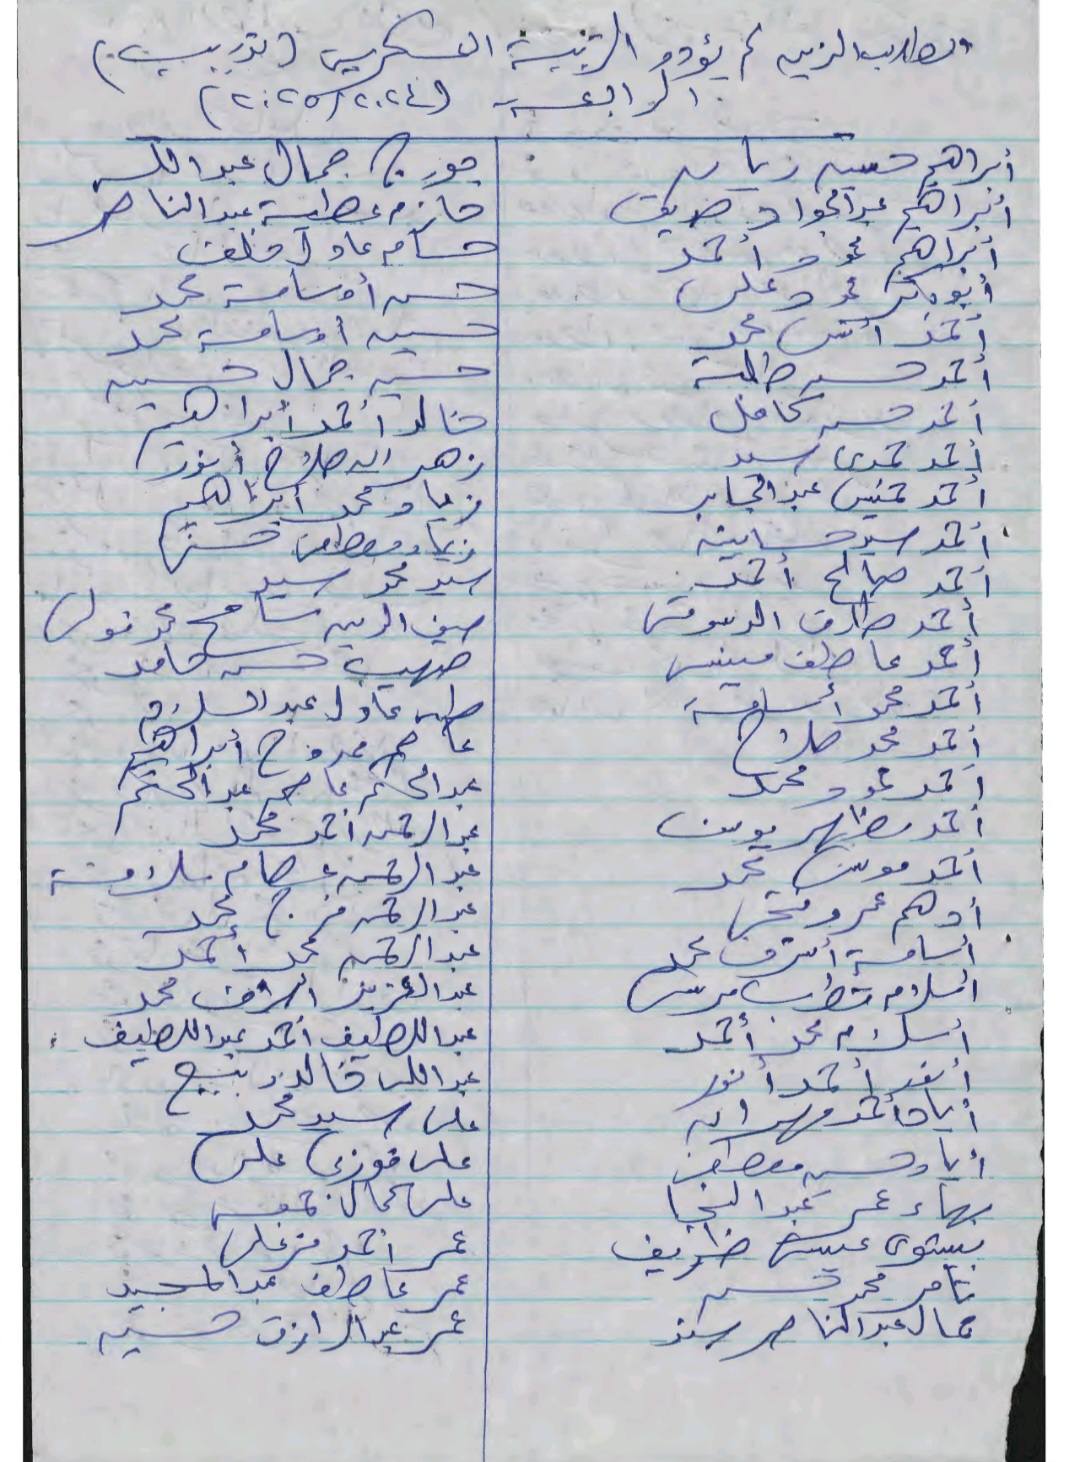 الطلاب الذين لم يؤدو التربية العسكرية (تدريب)
الرابعة (٢٠٢٥/٢٠٢٤)
أبراهيم حسين
أبراهيم عبدالجواد
أبراهيم محمود أحمد
أبوبكر محمود على
أحمد أنس محمد
أحمد حسن
أحمد حسن كامل
أحمد حمدى سيد
أحمد خميس عبدالجابر
أحمد سيد حسانين
أحمد صالح أحمد
أحمد طارق الدسوقى
أحمد عاطف
أحمد محمد أسامة
أحمد محمد صلاح
أحمد محمود محمد
أحمد مظهر يوسف
أحمد موسى محمد
أدهم عمرو فتحى
أسامة أشرف محمد
أسلام قطب مرسى
أسلام محمد أحمد
أحمد أنور
أياد أحمد مهران
أياد حسن مصطفى
بهاء عمر عبد
بستوى عيسى ظريف
تامر محمد حسن
جمال عبدالناصر سند
جورج جمال عبدالله
حازم عطية عبدالناصر
حسام عادل خلف
حسن أوسامة محمد
حسين أوسامة محمد
حسين جمال حسين
خالد أحمد أبراهيم
صلاح أنور
زياد محمد أبراهيم
زياد مصطفى حسن
سيد محمد سيد
سيف الدين سامح محمد
صهيب حسن حامد
طه عادل عبدالسلام
عاصم ممدوح أبراهيم
عبدالحكم عاصم عبدالحكم
عبدالرحمن أحمد محمد
عبدالرحمن عصام سلامة
عبدالرحمن فرج محمد
عبدالرحمن محمد أحمد
عبدالعزيز أشرف محمد
عبداللطيف أحمد عبداللطيف
عبدالله خالد ربيع
على سيد محمد
على فوزى على
على كمال جمعه
عمر أحمد فرغلى
عمر عاطف عبدالمجيد
عمر عبدالرازق حسين